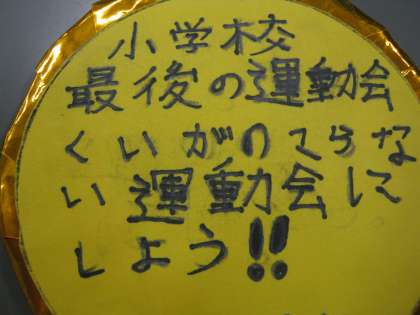 小学校
最後の運動会
くいがのこらな
い運動会に
しよう!!